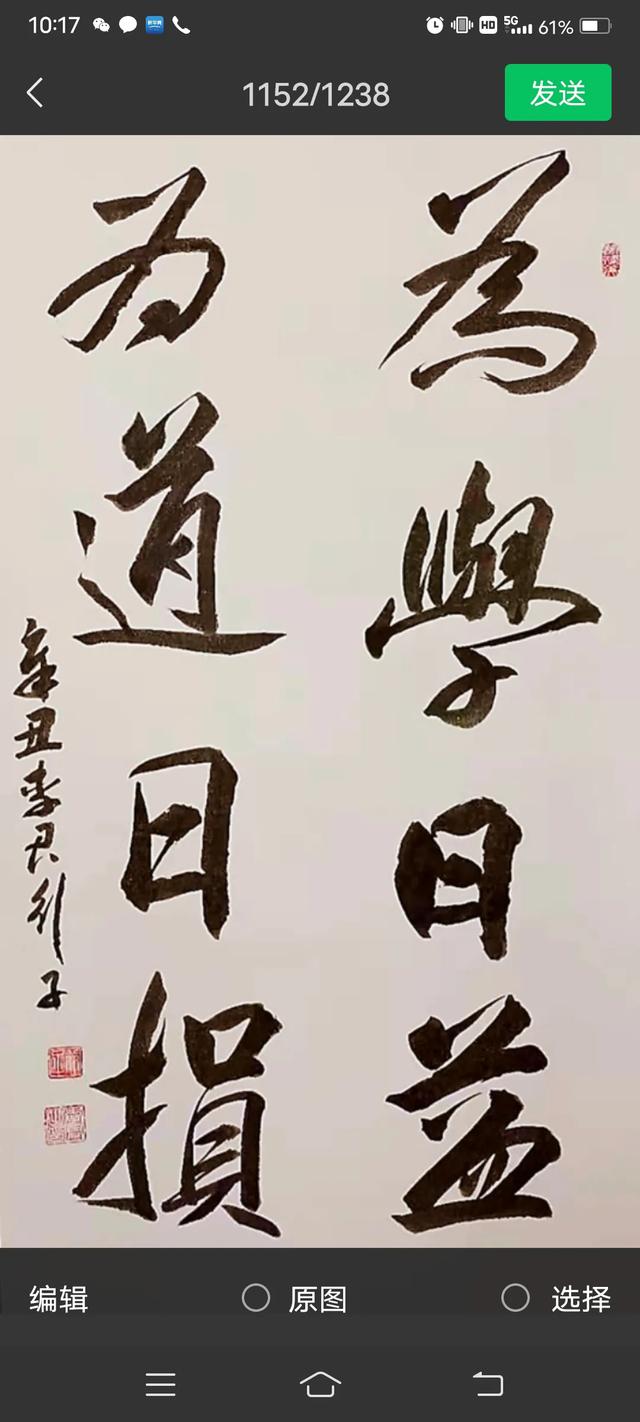 10:17
HD 5G 61%
1152/1238
发送
為學日益
为道日損
辛丑李君
编辑
原图
选择